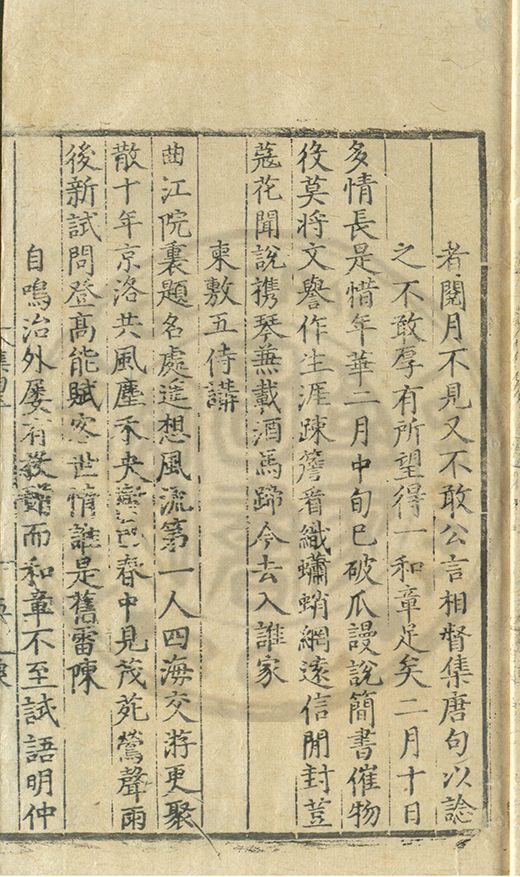 者閱月不見又不敢公言相督集唐句以諗
之不敢厚有所望得一和章足矣二月十日
多情長是惜年華二月中旬已破瓜謾說簡書催物
役莫將文譽作生涯踈簷看織蠨蛸網遠信閒封荳
蔻花聞說携琴兼載酒馬蹄今去入誰家
柬敷五侍講
曲江院裏題名處遥想風流第一人四海交游更聚
散十年京洛共風塵禾央 春中見茂苑鶯聲雨
後新試問登髙能賦客世情誰是舊雷陳
自鳴治外屢有 而和章不至試語明仲